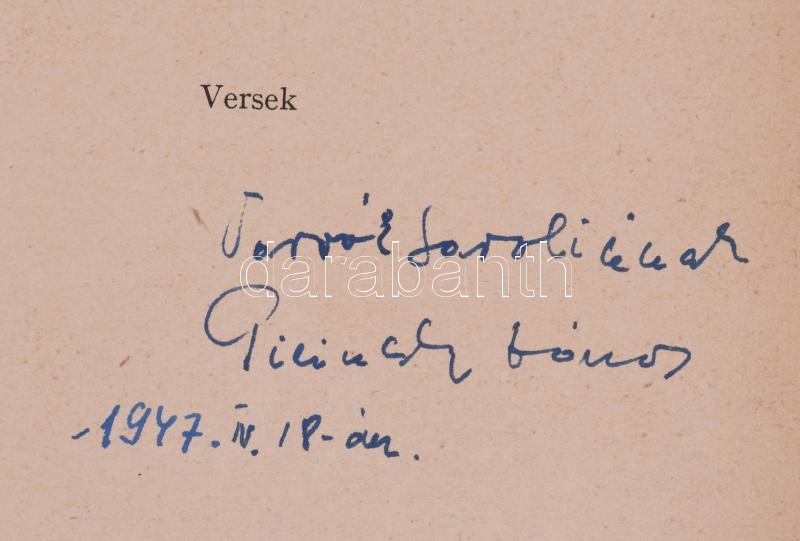 Versek
darabanth
Pilinszky János
1947. IV. 18-án.